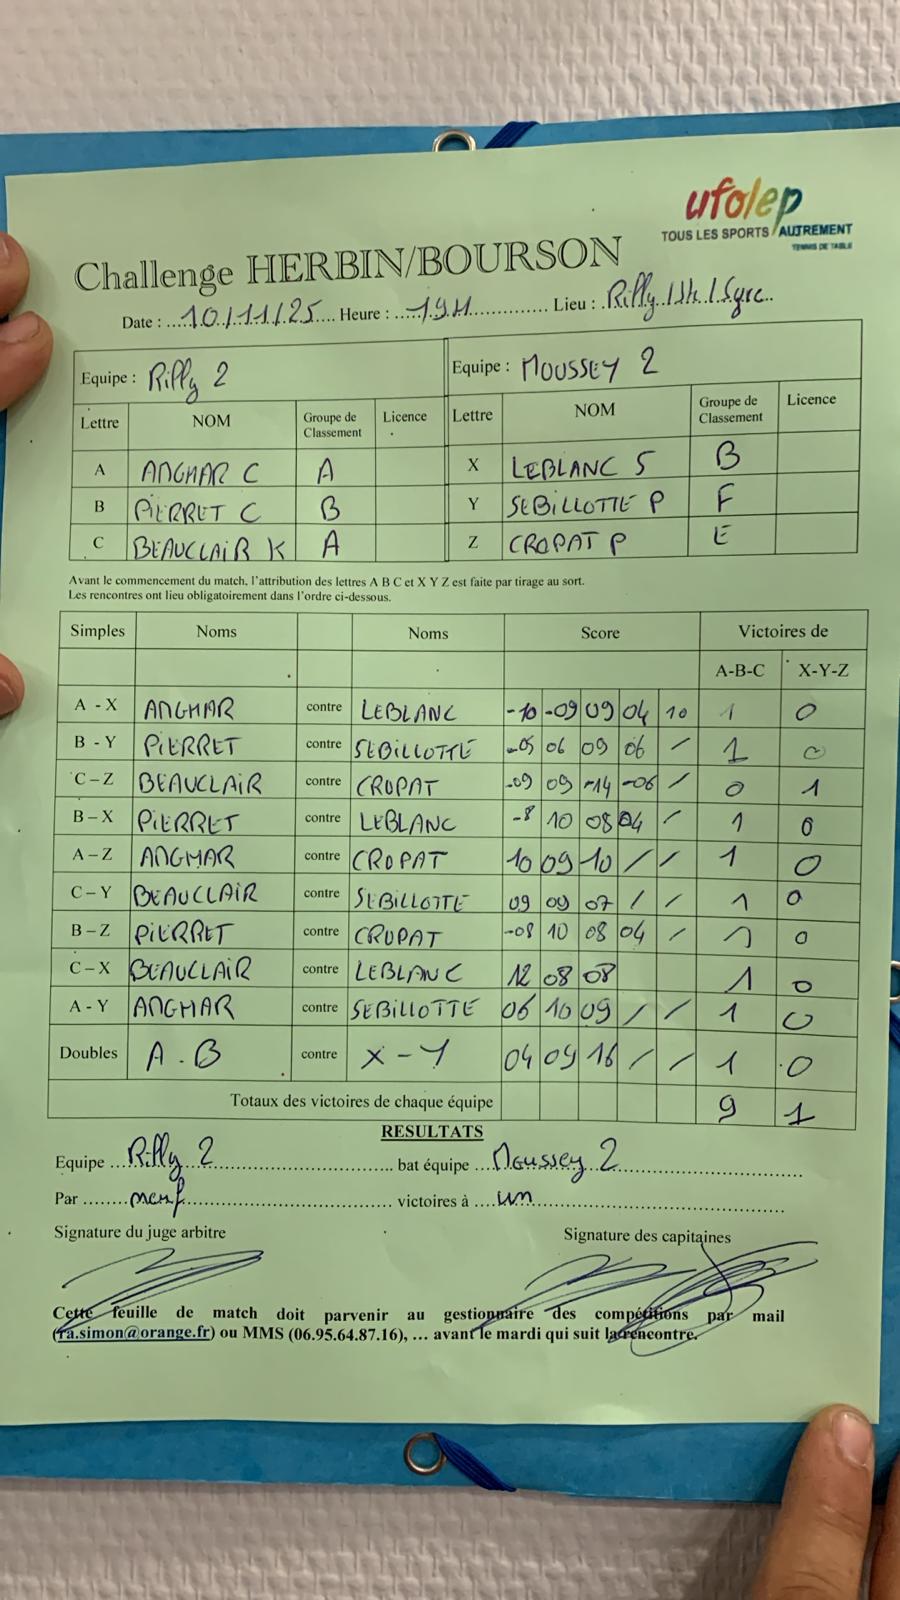 ufolep
TOUS LES SPORTS AUTREMENT
TENNIS DE TABLE
Challenge HERBIN/BOURSON
Date : 10/11/25 Heure : 19H Lieu : Rilly
Equipe : Rilly 2 Equipe : MOUSSEY 2
Lettre NOM Groupe de Classement Licence Lettre NOM Groupe de Classement Licence
A ANGMAR C A X LEBLANC S B
B PIERRET C B Y SEBILLOTTE P F
C BEAUCLAIR K A Z CROPAT P E
Avant le commencement du match, l'attribution des lettres A B C et X Y Z est faite par tirage au sort.
Les rencontres ont lieu obligatoirement dans l'ordre ci-dessous.
Simples Noms Noms Score Victoires de
A-B-C X-Y-Z
A - X ANGMAR contre LEBLANC -10 -09 09 04 10 1 0
B - Y PIERRET contre SEBILLOTTE -05 06 09 06 / 1 0
C – Z BEAUCLAIR contre CROPAT -09 09 -14 -06 / 0 1
B – X PIERRET contre LEBLANC -8 10 08 04 / 1 0
A – Z ANGMAR contre CROPAT 10 09 10 / / 1 0
C – Y BEAUCLAIR contre SEBILLOTTE 09 09 07 / / 1 0
B – Z PIERRET contre CROPAT -08 10 08 04 / 1 0
C – X BEAUCLAIR contre LEBLANC 12 08 08 1 0
A - Y ANGMAR contre SEBILLOTTE 06 10 09 / / 1 0
Doubles A - B contre X - Y 04 09 16 / / 1 0
Totaux des victoires de chaque équipe 9 1
RESULTATS
Equipe Rilly 2 bat équipe Moussey 2
Par neuf victoires à un
Signature du juge arbitre Signature des capitaines
Cette feuille de match doit parvenir au gestionnaire des compétitions par mail
(fa.simon@orange.fr) ou MMS (06.95.64.87.16), … avant le mardi qui suit la rencontre.